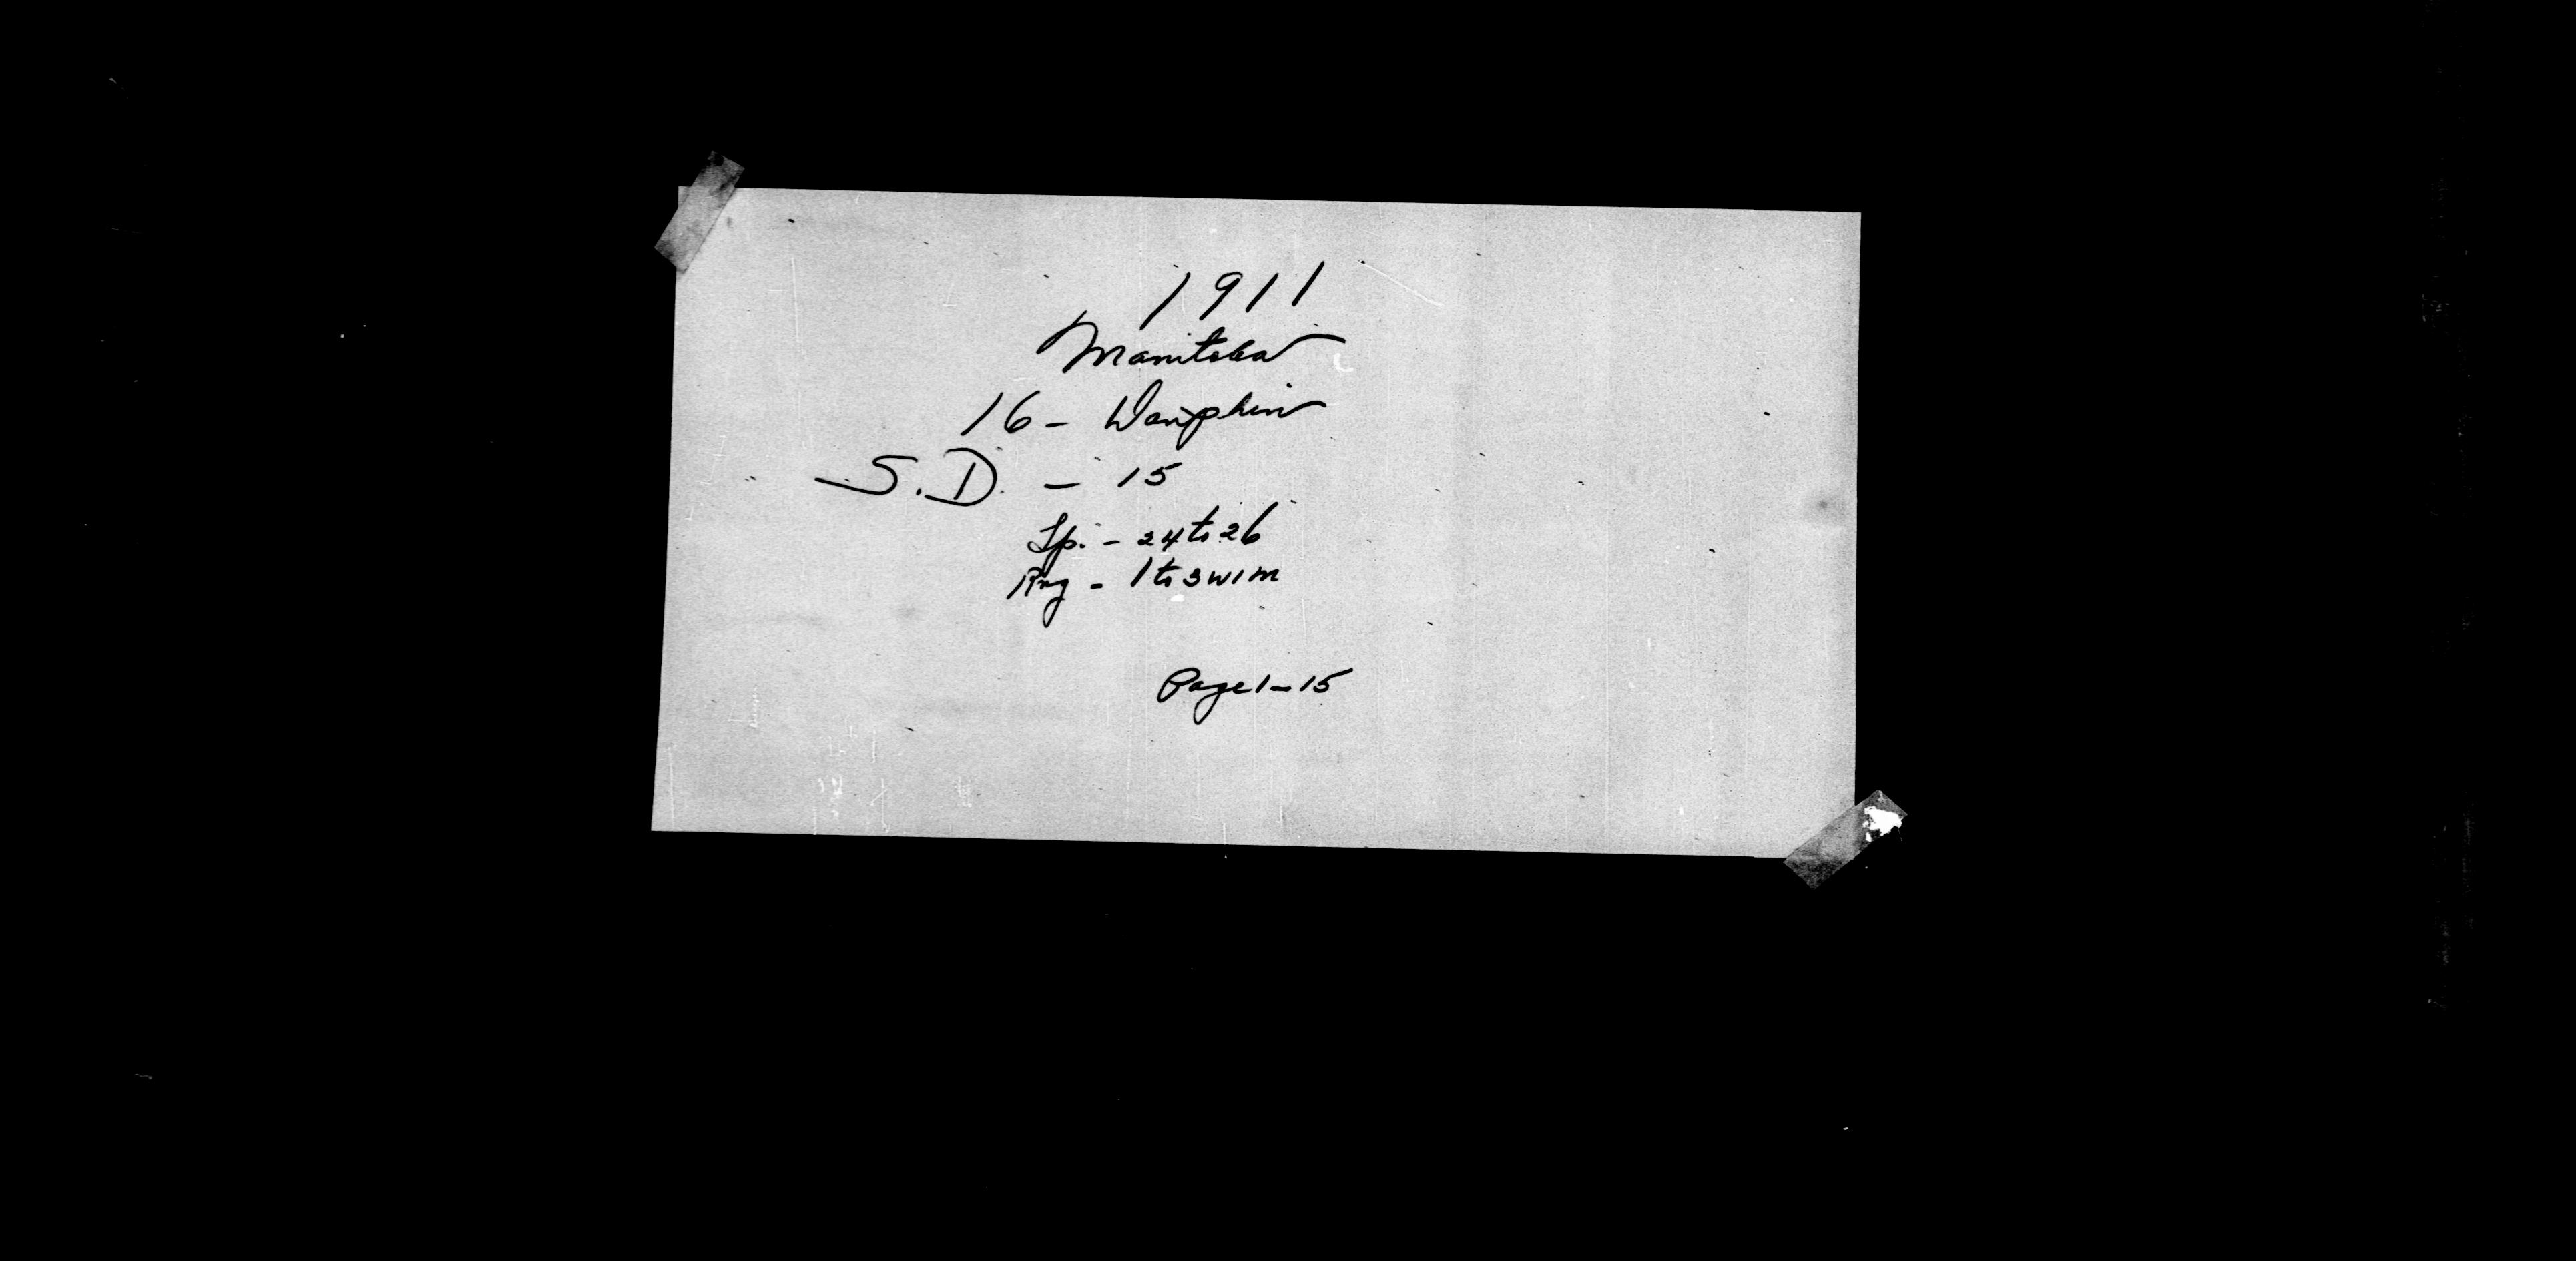 1911
Manitoba
16 - Dauphin
S.D. - 15
Tp. - 24 to 26
Rng - 1 to 3 W1M
Page 1-15